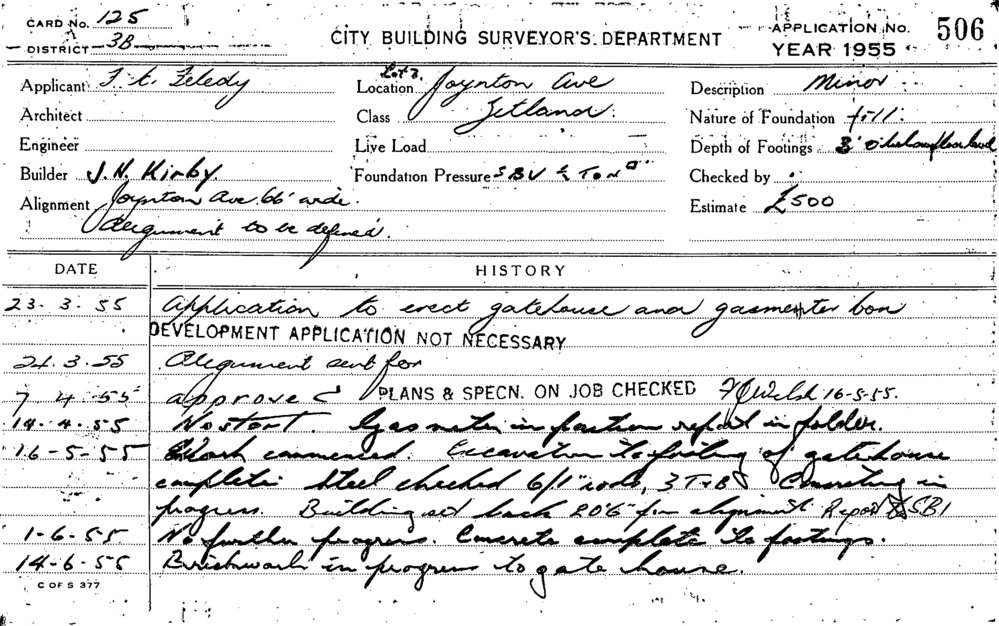 CARD No. 125
DISTRICT 3B
CITY BUILDING SURVEYOR'S DEPARTMENT
APPLICATION No. 506
YEAR 1955
Applicant
Architect
Engineer
Builder J. N. Kirby.
Alignment Joynton Ave 66' wide.
Alignment to be defined.
Lot 2.
Location Joynton Ave
Class Zetland.
Live Load
Foundation Pressure SBV ½ Ton
Description Minor
Nature of Foundation fill.
Depth of Footings 3' 0" below floor level
Checked by
Estimate £500
DATE HISTORY
23-3-55 Application to erect gatehouse and gasmeter box
DEVELOPMENT APPLICATION NOT NECESSARY
24.3.55 Alignment sent for
7 4 55 approved PLANS & SPECN. ON JOB CHECKED 16-5-55.
14-4-55 No start. Gas meter in position report in folder.
16-5-55 Work commenced. Excavation to footing of gatehouse
complete. Steel checked 6/1" rods, 3 T & B Concreting in
progress. Building set back 20'6" for alignment. Report to SBI
1-6-55 No further progress. Concrete complete to footings.
14-6-55 Brickwork in progress to gate house.
C OF S 377